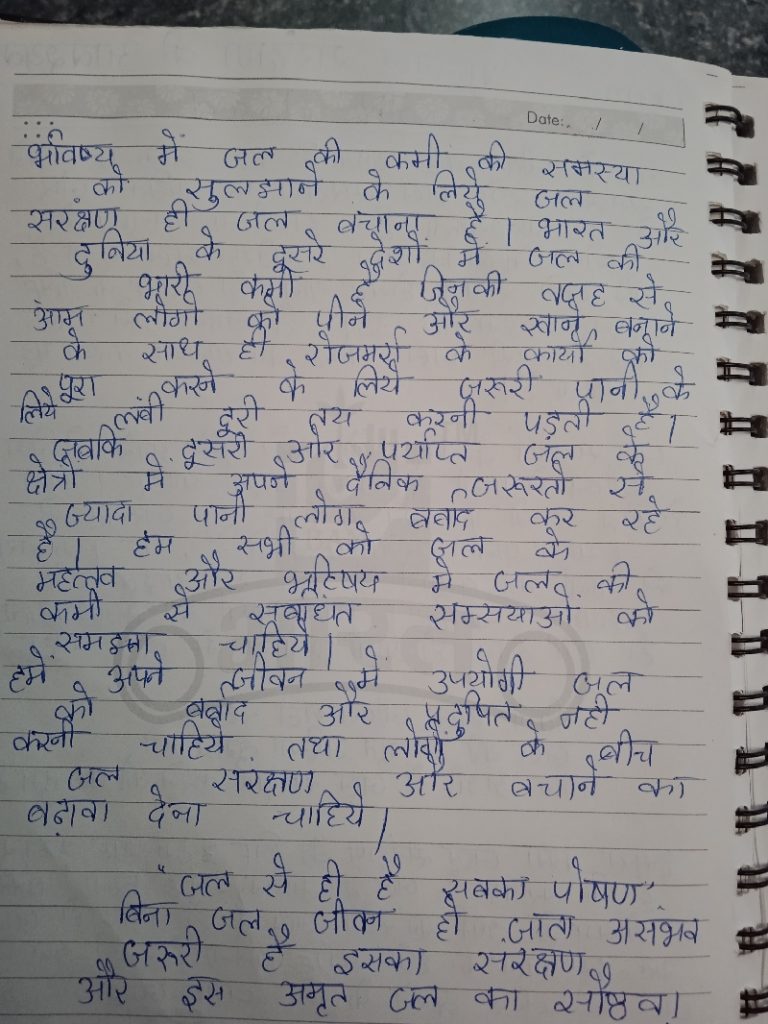 Date: / /
भविष्य में जल की कमी की समस्या
को सुलझाने के लिये जल
सरंक्षण ही जल बचाना है। भारत और
दुनिया के दूसरे देशों में जल की
भारी कमी है जिनकी वजह से
आम लोगो को पीने और खाने बनाने
के साथ ही रोजमर्रा के कार्यो को
पूरा करने के लिये जरूरी पानी के
लिये लंबी दूरी तय करनी पड़ती है।
जबकि दूसरी ओर पर्याप्त जल के
क्षेत्रो में अपने दैनिक जरूरतो से
ज्यादा पानी लोग बर्बाद कर रहे
है। हम सभी को जल के
महत्तव और भविषय में जल की
कमी से सबंधित सम्सयाओ को
समझना चाहिये।
हमे अपने जीवन मे उपयोगी जल
को बर्बाद और प्रदुषित नही
करनी चाहिये तथा लोगो के बीच
जल सरंक्षण और बचाने का
बढ़ावा देना चाहिये।
"जल से ही है सबका पोषण"
बिना जल जीवन हो जाता असंभव
जरूरी है इसका संरक्षण
और इस अमृत जल का सौष्ठव।